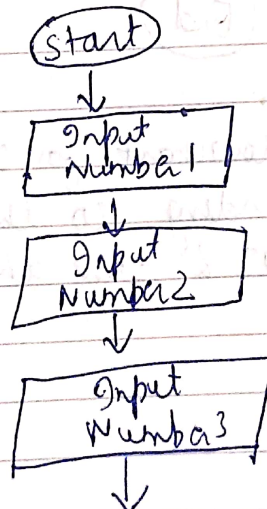 Start
Input
Number1
Input
Number2
Input
Number3